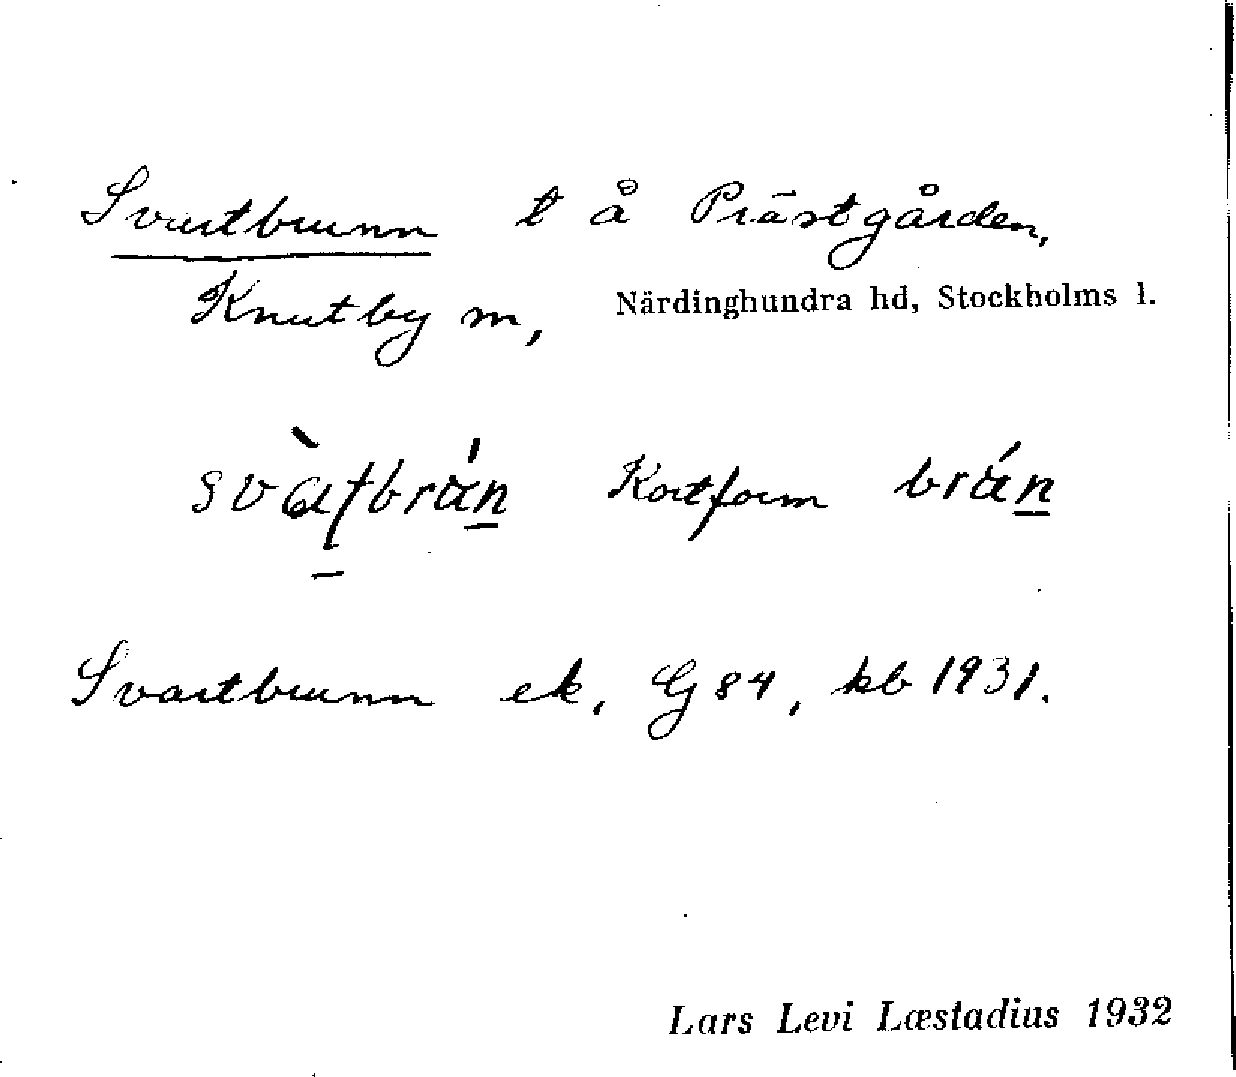 Svartbrunn t å Prästgården,
Knutby m, Närdinghundra hd, Stockholms l.
svàtbrán Kortform brán
Svartbrunn ek, G 84, kb 1931.
Lars Levi Læstadius 1932